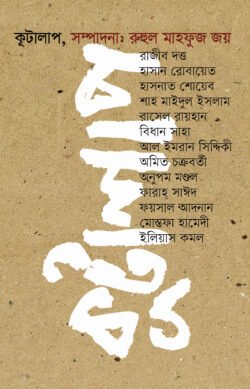 কূটালাপ, সম্পাদনা: রুহুল মাহফুজ জয়
রাজীব দত্ত
হাসান রোবায়েত
হাসনাত শোয়েব
শাহ মাইদুল ইসলাম
রাসেল রায়হান
বিধান সাহা
আল ইমরান সিদ্দিকী
অমিত চক্রবর্তী
অনুপম মণ্ডল
ফারাহ্ সাঈদ
ফয়সাল আদনান
মোস্তফা হামেদী
ইলিয়াস কমল
কূটালাপ